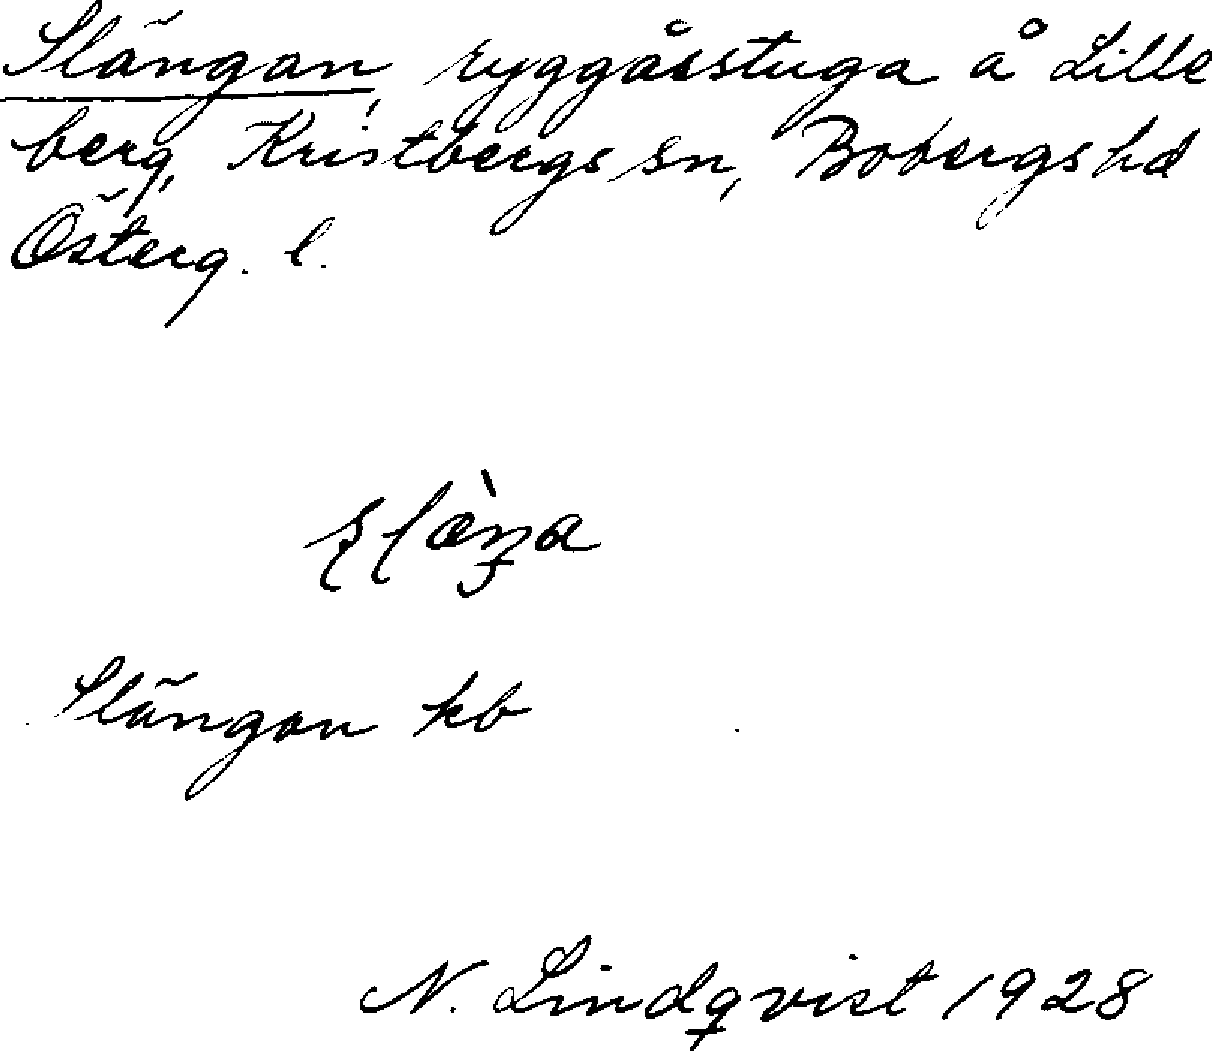 Slängan, ryggåsstuga å Lille
berg, Kristbergs sn, Bobergs hd
Österg. l.
Slängan kb
N. Lindqvist 1928